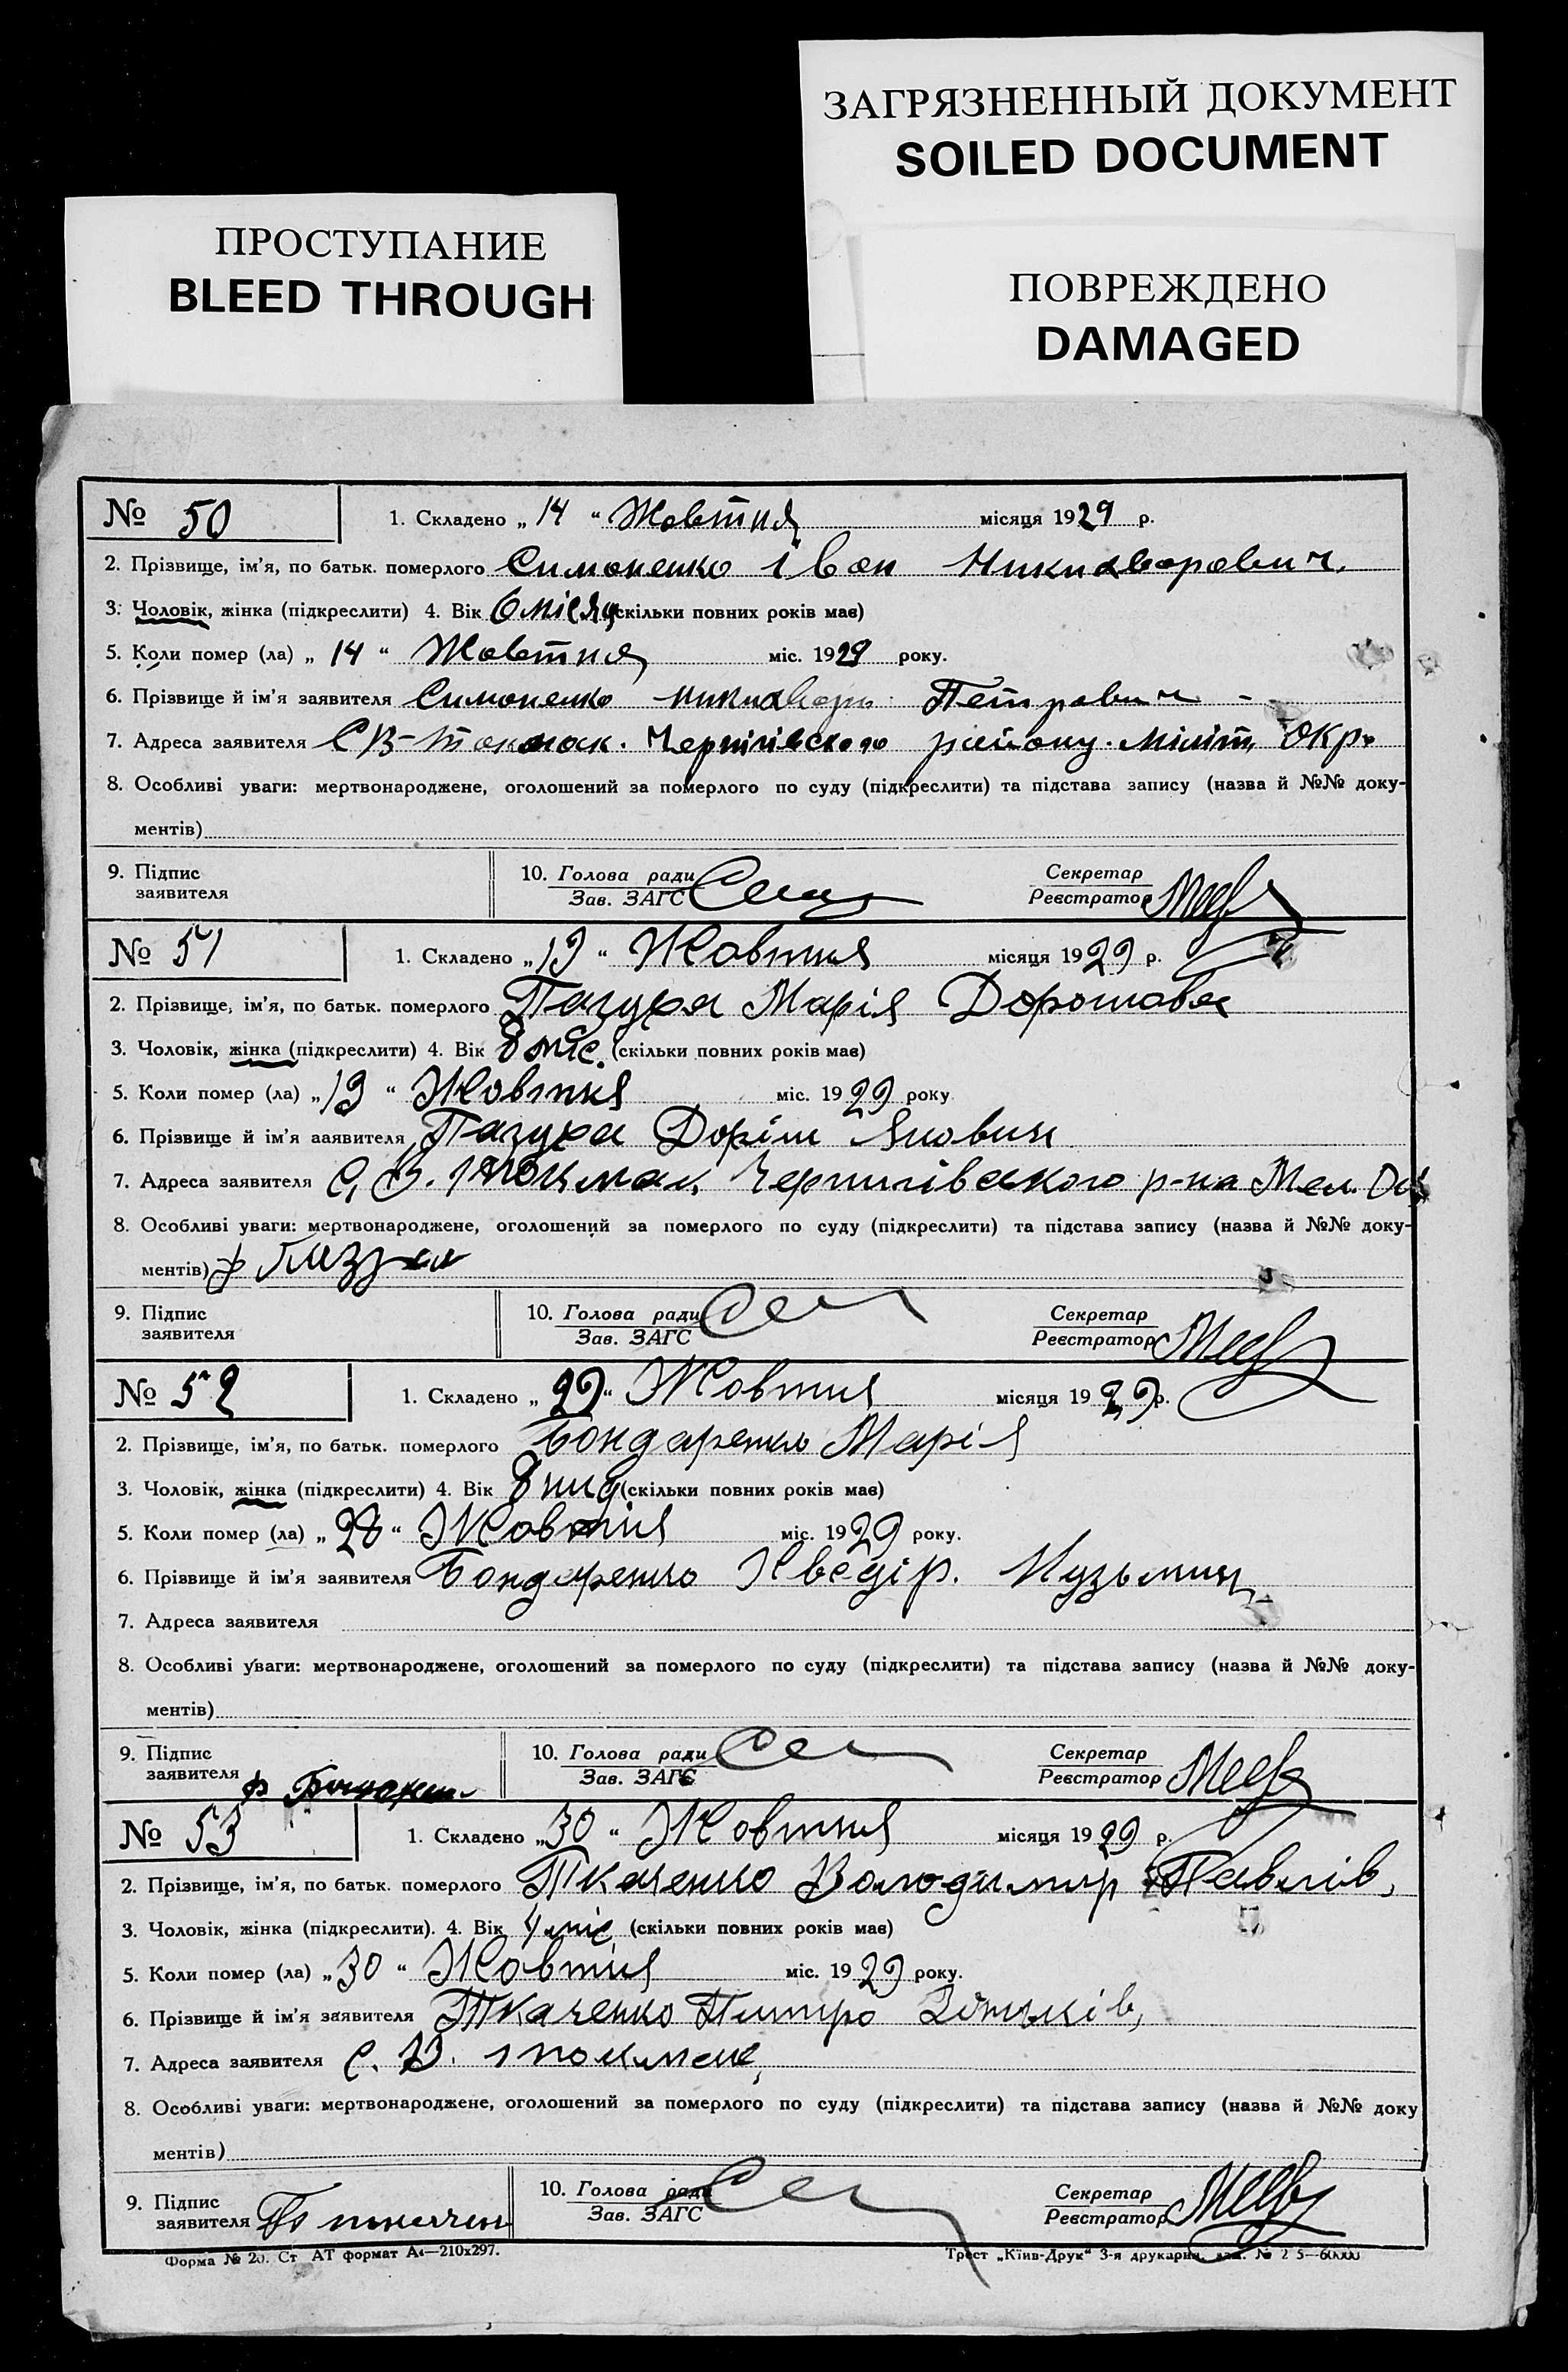 ЗАГРЯЗНЕННЫЙ ДОКУМЕНТ
SOILED DOCUMENT
ПРОСТУПАНИЕ
BLEED THROUGH
ПОВРЕЖДЕНО
DAMAGED
№ 50 1. Складено „ 14 “ Жовтня місяця 1929 р.
2. Прізвище, ім’я, по батьк. померлого Симоненко Іван
3. Чоловік, жінка (підкреслити) 4. Вік 6 місяц (скільки повних років має)
5. Коли помер (ла) „ 14 “ Жовтня міс. 1929 року.
6. Прізвище й ім’я заявителя Симоненко Петрович
7. Адреса заявителя С В-Токмак. Чернігівского району. Меліт. Окр.
8. Особливі уваги: мертвонароджене, оголошений за померлого по суду (підкреслити) та підстава запису (назва й №№ доку-
ментів)
9. Підпис заявителя 10. Голова ради Зав. ЗАГС Секретар Реєстратор
№ 51 1. Складено „ 19 “ Жовтня місяця 1929 р.
2. Прізвище, ім’я, по батьк. померлого Пазуха Марія Дорошовна
3. Чоловік, жінка (підкреслити) 4. Вік 8 міс. (скільки повних років має)
5. Коли помер (ла) „ 19 “ Жовтня міс. 1929 року
6. Прізвище й ім’я заявителя Пазуха Доріш Якович
7. Адреса заявителя С. В. Токмак, Чернигівского р-на Мел. Окр
8. Особливі уваги: мертвонароджене, оголошений за померлого по суду (підкреслити) та підстава запису (назва й №№ доку-
ментів)
9. Підпис заявителя 10. Голова ради Зав. ЗАГС Секретар Реєстратор
№ 52 1. Складено „ 29 “ Жовтня місяця 1929 р.
2. Прізвище, ім’я, по батьк. померлого Бондаренко Марія
3. Чоловік, жінка (підкреслити) 4. Вік 8 (скільки повних років має)
5. Коли помер (ла) „ 28 “ Жовтня міс. 1929 року.
6. Прізвище й ім’я заявителя Бондаренко Хведір. Кузьмич
7. Адреса заявителя
8. Особливі уваги: мертвонароджене, оголошений за померлого по суду (підкреслити) та підстава запису (назва й №№ доку-
ментів)
9. Підпис заявителя 10. Голова ради Зав. ЗАГС Секретар Реєстратор
№ 53 1. Складено „ 30 “ Жовтня місяця 1929 р.
2. Прізвище, ім’я, по батьк. померлого Ткаченко Володимир Павлів,
3. Чоловік, жінка (підкреслити). 4. Вік 4 міс (скільки повних років має)
5. Коли помер (ла) „ 30 “ Жовтня міс. 1929 року.
6. Прізвище й ім’я заявителя Ткаченко
7. Адреса заявителя С. В. Токмак,
8. Особливі уваги: мертвонароджене, оголошений за померлого по суду (підкреслити) та підстава запису (назва й №№ доку
ментів)
9. Підпис заявителя 10. Голова ради Зав. ЗАГС Секретар Реєстратор
Форма № 20. Ст АТ формат А4—210х297. Трест „Київ-Друк“ 3-я друкарня,